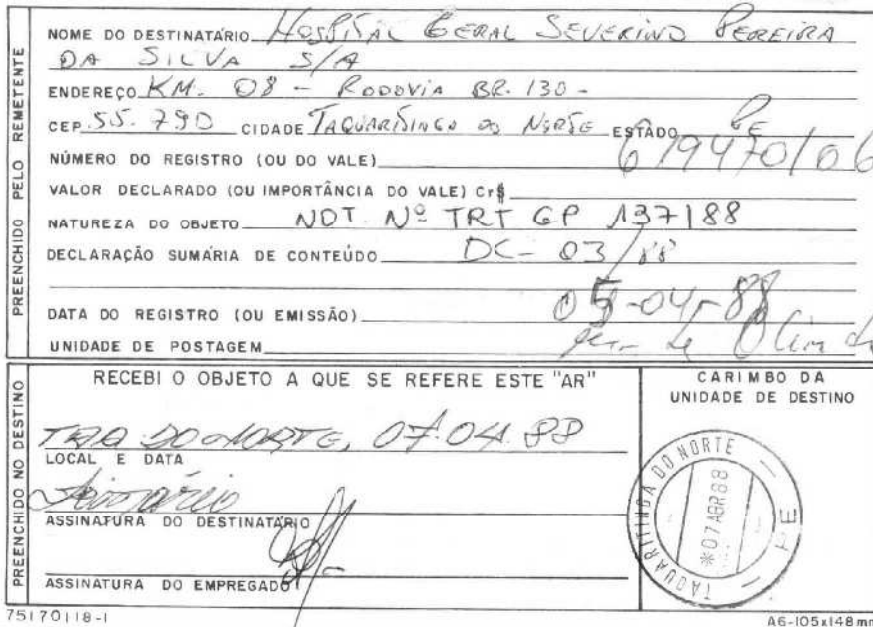 PREENCHIDO PELO REMETENTE
NOME DO DESTINATÁRIO HOSPITAL GERAL SEVERINO PEREIRA
DA SILVA S/A
ENDEREÇO KM. 08 - RODOVIA BR. 130 -
CEP 55.790 CIDADE TAQUARITINGA DO NORTE ESTADO PE
NÚMERO DO REGISTRO (OU DO VALE) 619470/06
VALOR DECLARADO (OU IMPORTÂNCIA DO VALE) Cr$
NATUREZA DO OBJETO NOT. Nº TRT GP 137188
DECLARAÇÃO SUMÁRIA DE CONTEÚDO DC- 03/88
DATA DO REGISTRO (OU EMISSÃO) 05-04-88
UNIDADE DE POSTAGEM
PREENCHIDO NO DESTINO
RECEBI O OBJETO A QUE SE REFERE ESTE "AR"
TAQ. DO NORTE, 07.04.88
LOCAL E DATA
ASSINATURA DO DESTINATÁRIO
ASSINATURA DO EMPREGADO
CARIMBO DA
UNIDADE DE DESTINO
TAQUARITINGA DO NORTE
*07 ABR 88
PE
75170118-1
A6-105x148mm